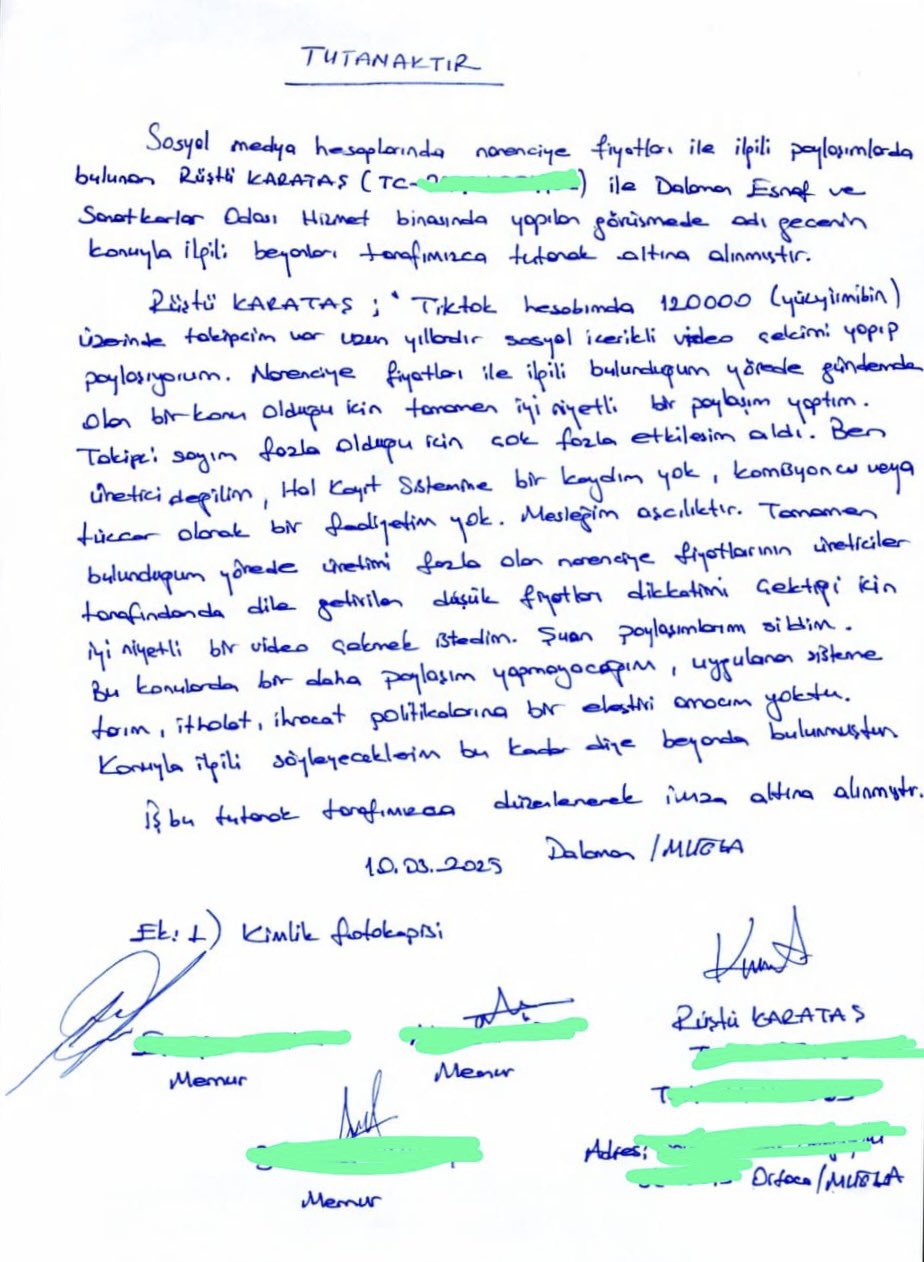 TUTANAKTIR
Sosyal medya hesaplarında narenciye fiyatları ile ilgili paylaşımlarda
bulunan Rüştü KARATAŞ (TC- ) ile Dalaman Esnaf ve
Sanatkarlar Odası Hizmet binasında yapılan görüşmede adı geçenin
konuyla ilgili beyanları tarafımızca tutanak altına alınmıştır.
Rüştü KARATAŞ ; " Tiktok hesabımda 120000 (yüzyirmibin)
üzerinde takipcim var uzun yıllardır sosyal icerikli video çekimi yapıp
paylaşıyorum. Narenciye fiyatları ile ilgili bulunduğum yörede gündemde
olan bir konu olduğu icin tamamen iyi niyetli bir paylaşım yaptım.
Takipci sayım fazla olduğu icin cok fazla etkilesim aldı. Ben
üretici değilim, Hal Kayıt Sistemine bir kaydım yok, komisyoncu veya
tüccar olarak bir faaliyetim yok. Mesleğim aşcılıktır. Tamamen
bulunduğum yörede üretimi fazla olan narenciye fiyatlarının üreticiler
tarafındanda dile getirilen düşük fiyatları dikkatimi çektiği icin
iyi niyetli bir video çekmek istedim. Şuan paylaşımlarım sildim.
Bu konularda bir daha paylaşım yapmayacağım, uygulanan sisteme
tarım, ithalat, ihracat politikalarına bir eleştiri amacım yoktu.
Konuyla ilgili söyleyeceklerim bu kadar diye beyanda bulunmuştur.
İş bu tutanak tarafımızca düzenlenerek imza altına alınmıştır.
10.03.2025 Dalaman / MUĞLA
Ek: 1) Kimlik fotokopisi
Rüştü KARATAŞ
Memur
Memur
Adres:
Ortaca / MUĞLA
Memur